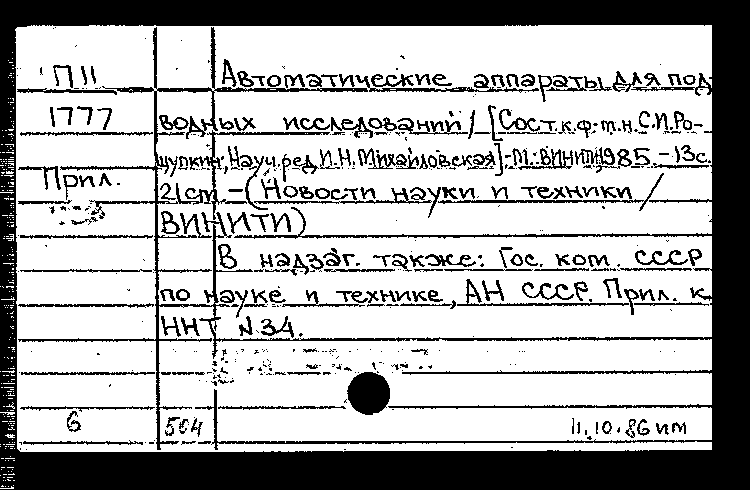 П11 Автоматические аппараты для под
1777 водных исследований / [Сост.к.ф-т.н.С.И.Ро-
щупкин, Науч.ред.И.Н.Михайловская].-М.:ВИНИТИ,1985.-13с.
Прил. 21cm.-(Новости науки и техники /
ВИНИТИ)
В надзаг. также: Гос. ком. СССР
по науке и технике, АН СССР. Прил. к
ННТ N34.
6 504 11.10.86 ип